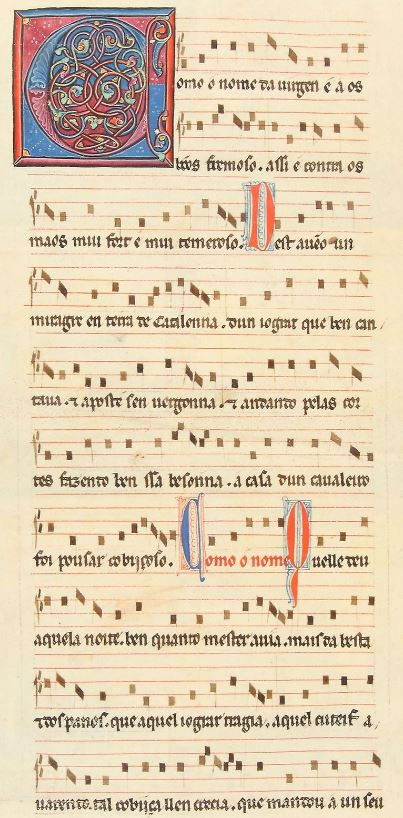 Como o nome da uirgen é a os
bõos fremoso . assi e contra os
maos mui fort e mui temeroso . Dest auẽo un
miragre en terra de Catalonna . dun iograr que ben can /
taua . ⁊ apost e sen uergonna . ⁊ andando pelas cor
tes fazendo ben ssa besonna . a casa dun caualeiro
foi pousar cobijçoso . Como o nome Quelle deu
aquela noite . ben quanto mester auia . mais da besta
⁊ dos panos . que aquel iograr tragia . aquel
uarento . tal cobijça llen crecia . que mandou a un seu